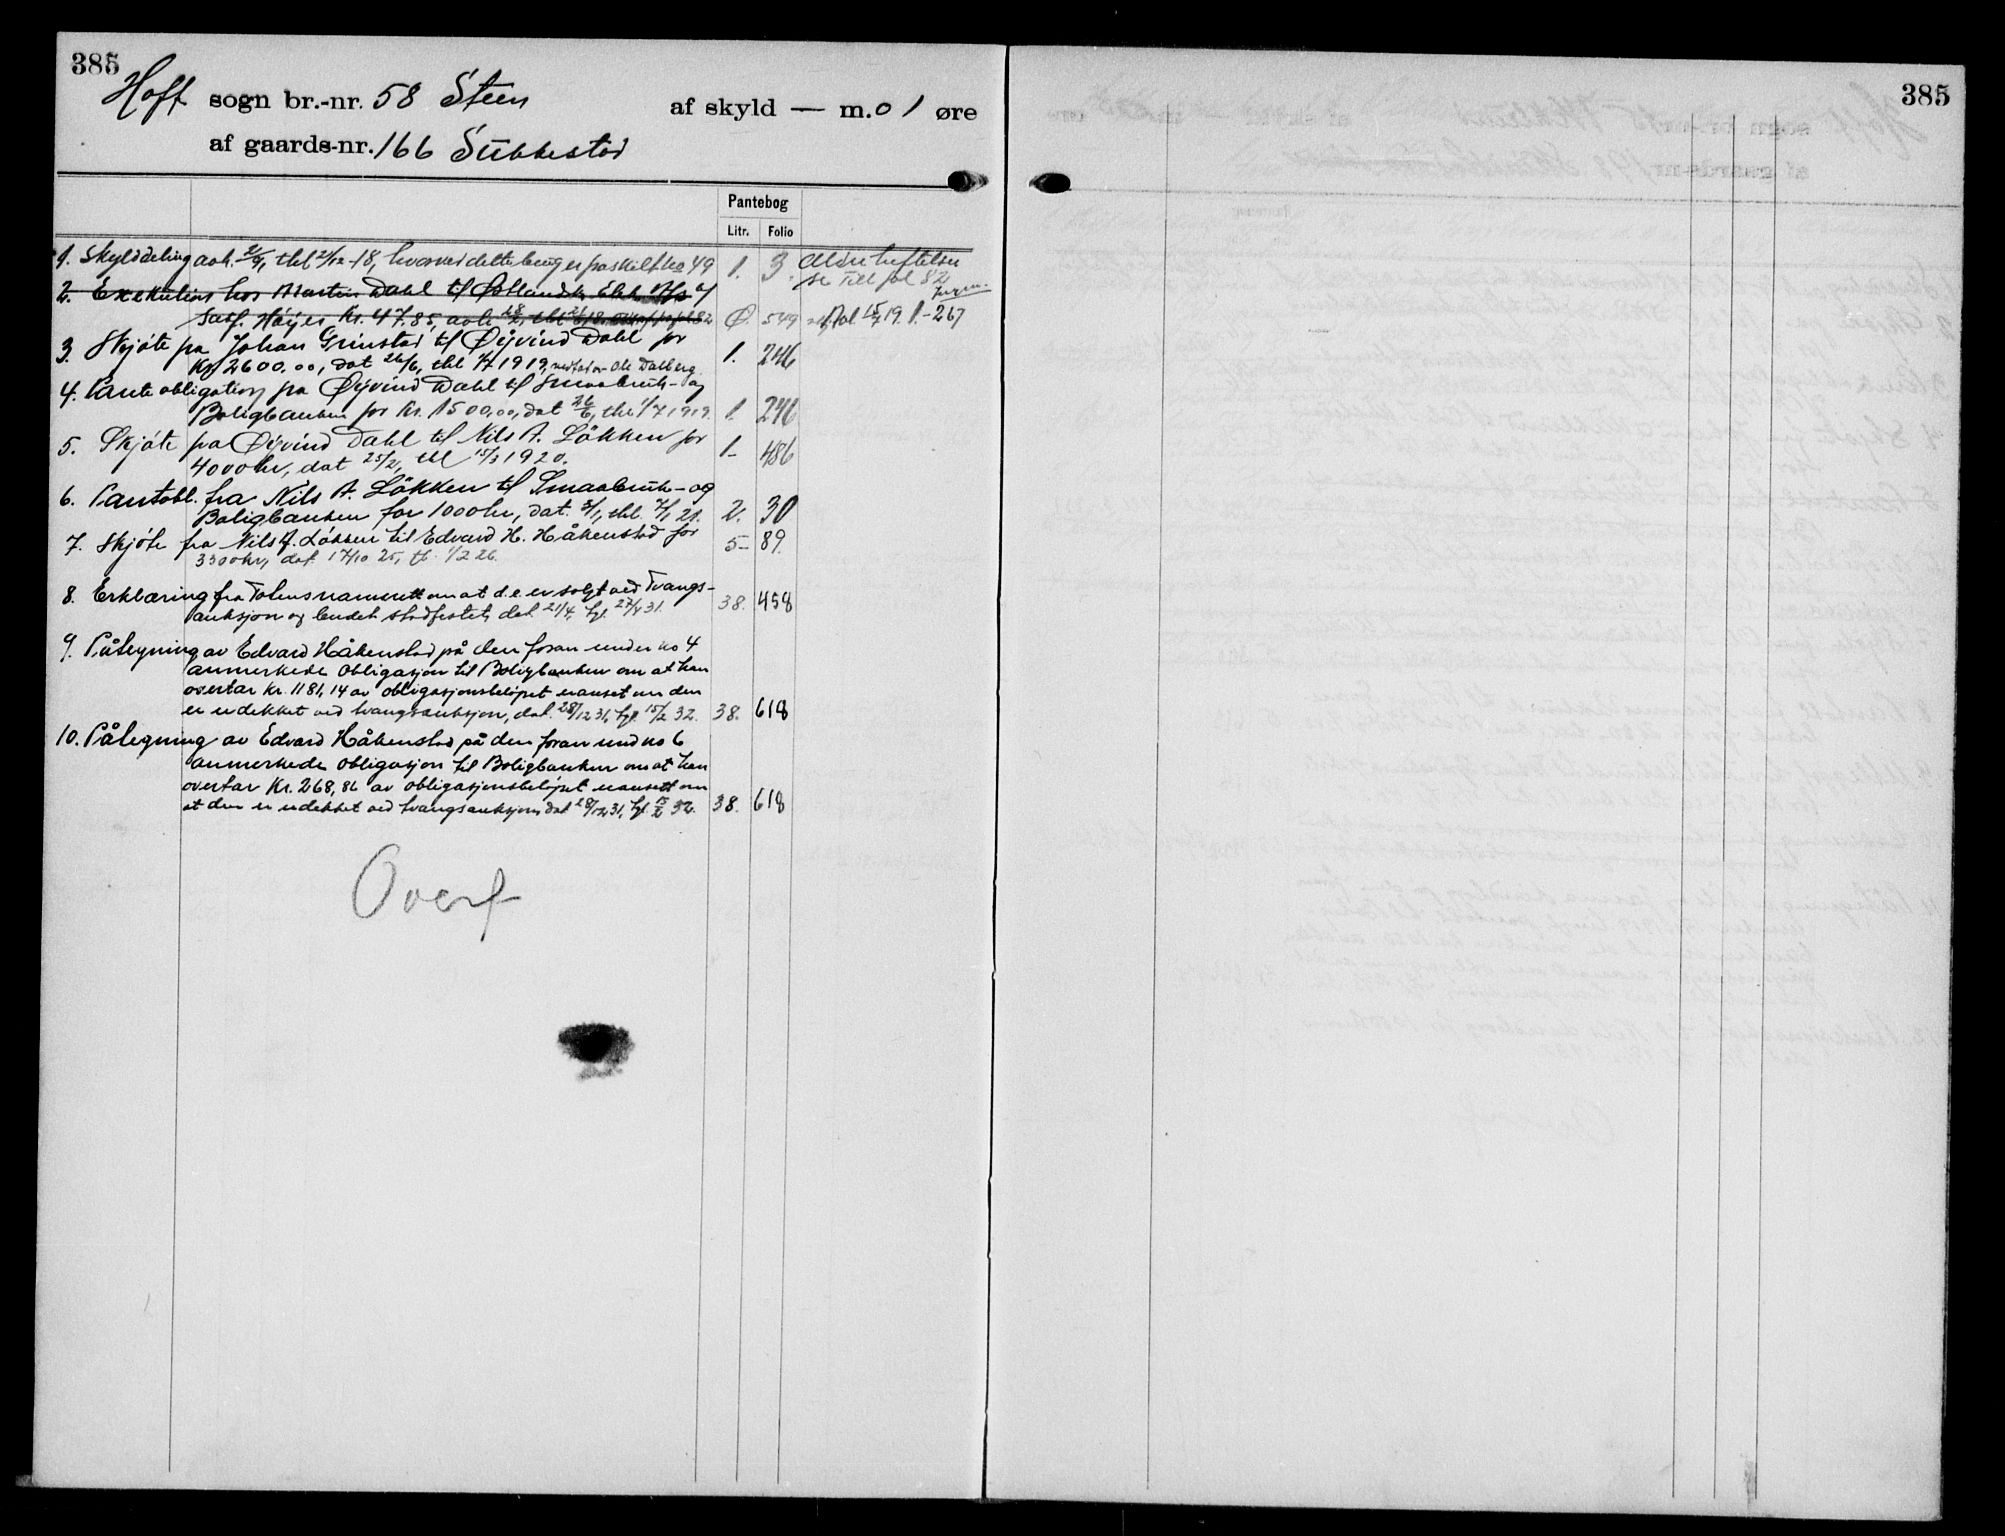 385
Hoff sogn br.-nr. 58 Steen af skyld — m. 01 øre
af gaards-nr. 166 Sukkestad
Pantebog
Litr. Folio
1. Skylddeling avh. 21/9, thl 2/12-18, hvorved dette brug er fraskilt bno 49 1. 3. Ældre heftelser
se Till fol 82
2. Exekution hos Martin Dahl til Østlandske
Høyer Kr. 47.85, Ø. 549 15/7 19. 1.-267
3. Skjøte fra Johan Grinstad til Øyvind Dahl for
Kr 2600.00, dat 26/6, thl 1/7 1919, Ole Dahlberg. 1. 246
4. Panteobligation fra Øyvind Dahl til Smaabruk- og
Boligbanken for Kr. 1500,00, dat 26/6, thl 1/7 1919. 1. 246
5. Skjøte fra Øyvind Dahl til Nils A. Løkken for
4000 kr, dat 25/2, thl 15/3 1920. 1- 486
6. Pantobl. fra Nils A. Løkken til Smaabruk- og
Boligbanken for 1000 kr, dat. 3/1, thl. 7/1 21. 2. 30
7. Skjøte fra Nils A. Løkken til Edvard H. Håkenstad for
3300 kr, dat. 17/10 25, tl. 1/2 26. 5- 89.
8. Erklæring fra Totens namsrett om at d.e. er solgt ved Tvangs-
auksjon og budet stadfestet, dat 21/4, tgl. 27/4 31. 38. 458
9. Påtegning av Edvard Håkenstad på den foran under no 4
anmerkede Obligasjon til Boligbanken om at han
overtar Kr. 1181,14 av obligasjonsbeløpet uanset om den
er udekket ved tvangsauksjon, dat. 28/12 31, tgl. 15/2 32. 38. 618
10. Påtegning av Edvard Håkenstad på den foran und no 6
anmerkede Obligasjon til Boligbanken om at han
overtar Kr. 268,86 av obligasjonsbeløpet uansett om
at den er udekket ved tvangsauksjon, dat 28/12 31, tgl. 15/2 32. 38. 618
Overf
385